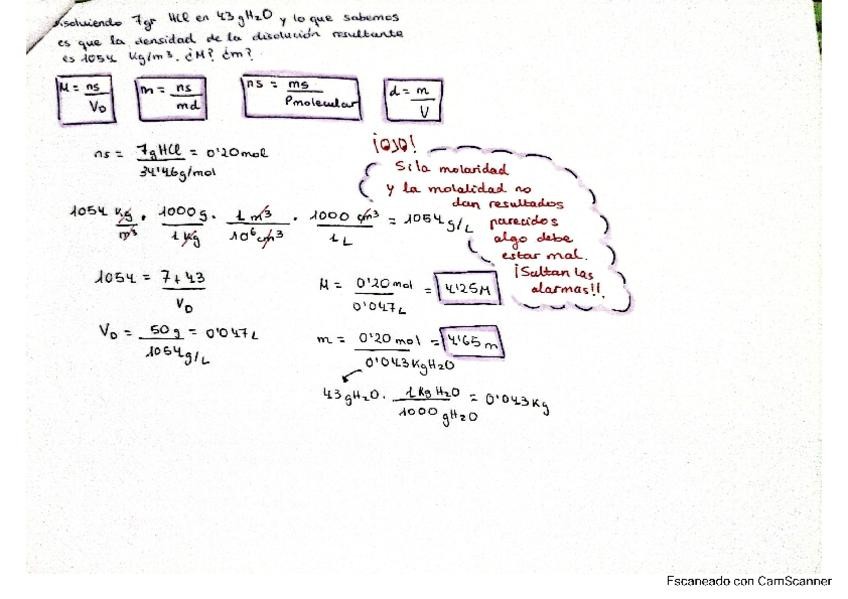 Disolviendo 7gr HCl en 43 gH₂O y lo que sabemos
es que la densidad de la disolución resultante
es 1054 Kg/m³. ¿M? ¿m?
M = ns/V_D m = ns/md ns = ms/Pmolecular d = m/V
ns = 7gHCl/34'46g/mol = 0'20mol
¡OJO!
Si la molaridad
y la molalidad no
dan resultados
parecidos
algo debe
estar mal.
¡Saltan las
alarmas!!
1054 Kg/m³ · 1000g/1Kg · 1 m³/10⁶cm³ · 1000 cm³/1L = 1054 g/L
1054 = 7+43/V_D
M = 0'20mol/0'047L = 4'25M
V_D = 50g/1054g/L = 0'047L
m = 0'20mol/0'043KgH₂O = 4'65m
43gH₂O · 1KgH₂O/1000gH₂O = 0'043Kg
Escaneado con CamScanner